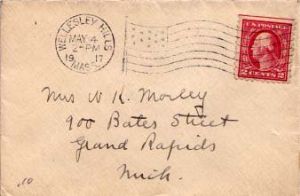 WELLESLEY HILLS
MAY 4
2-PM
19 17
MASS.
U.S. POSTAGE
2 CENTS 2
Mrs W. K. Morley
900 Bates Street
Grand Rapids
Mich.
.10